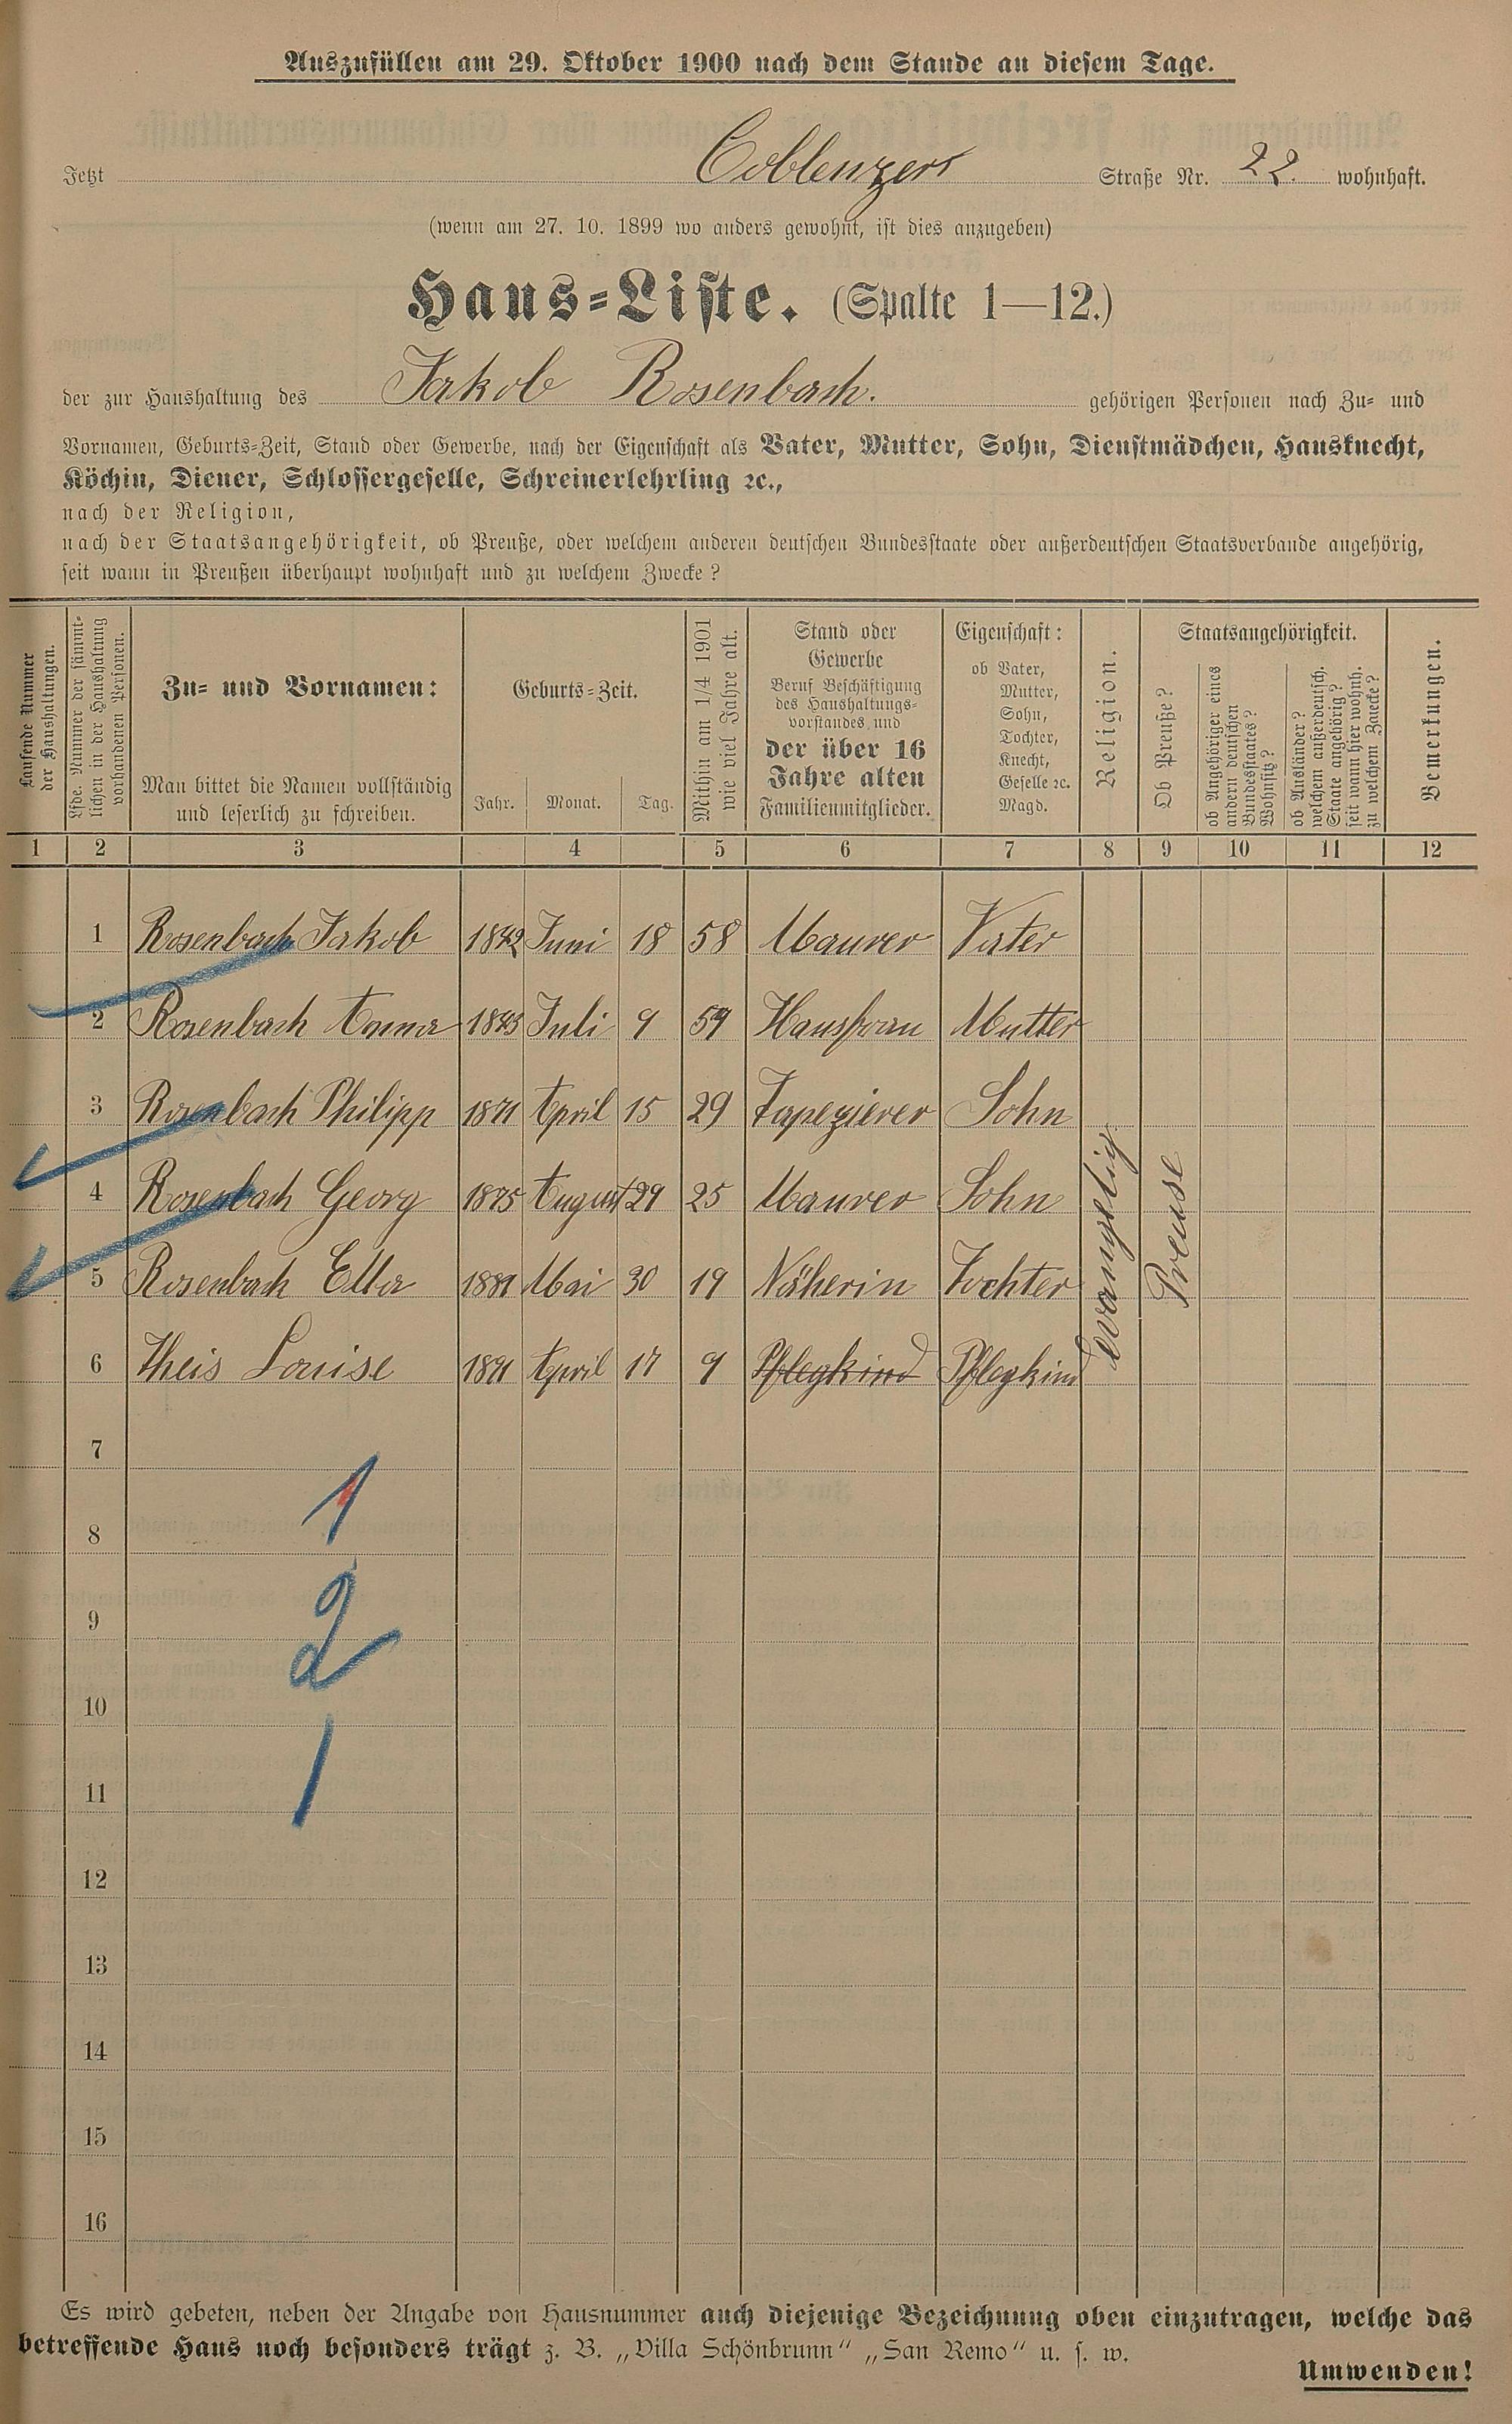 Auszufüllen am 29. Oktober 1900 nach dem Stande an diesem Tage.
Jetzt Coblenzers Straße Nr. 22. wohnhaft.
(wenn am 27. 10. 1899 wo anders gewohnt, ist dies anzugeben)
Haus-Liste. (Spalte 1—12.)
der zur Haushaltung des Jakob Rosenbach. gehörigen Personen nach Zu- und
Vornamen, Geburts-Zeit, Stand oder Gewerbe, nach der Eigenschaft als Vater, Mutter, Sohn, Dienstmädchen, Hausknecht,
Köchin, Diener, Schlossergeselle, Schreinerlehrling ꝛc.,
nach der Religion,
nach der Staatsangehörigkeit, ob Preuße, oder welchem anderen deutschen Bundesstaate oder außerdeutschen Staatsverbande angehörig,
seit wann in Preußen überhaupt wohnhaft und zu welchem Zwecke?
Laufende Nummer
der Haushaltungen.
Lfde. Nummer der sämmt-
lichen in der Haushaltung
vorhandenen Personen.
Zu- und Vornamen:
Man bittet die Namen vollständig
und leserlich zu schreiben.
Geburts-Zeit.
Jahr. Monat. Tag.
Mithin am 1/4 1901
wie viel Jahre alt.
Stand oder
Gewerbe
Beruf Beschäftigung
des Haushaltungs-
vorstandes und
der über 16
Jahre alten
Familienmitglieder.
Eigenschaft:
ob Vater,
Mutter,
Sohn,
Tochter,
Knecht,
Geselle ꝛc.
Magd.
Religion.
Staatsangehörigkeit.
Ob Preuße?
ob Angehöriger eines
andern deutschen
Bundesstaates?
Wohnsitz?
ob Ausländer?
welchem außerdeutsch.
Staate angehörig?
seit wann hier wohnh.
zu welchem Zwecke?
Bemerkungen.
1 2 3 4 5 6 7 8 9 10 11 12
1 Rosenbach Jakob 1842 Juni 18 58 Maurer Vater
2 Rosenbach Anna 1843 Juli 9 59 Hausfrau Mutter
3 Rosenbach Philipp 1871 April 15 29 Tapezierer Sohn
4 Rosenbach Georg 1875 August 29 25 Maurer Sohn
5 Rosenbach Ella 1881 Mai 30 19 Näherin Tochter
6 Theis Louise 1891 April 17 9 Pflegkind Pflegkind
evangelig
Preuse
7
8
9
10
11
12
13
14
15
16
1
2
1
Es wird gebeten, neben der Angabe von Hausnummer auch diejenige Bezeichnung oben einzutragen, welche das
betreffende Haus noch besonders trägt z. B. „Villa Schönbrunn“ „San Remo“ u. s. w.
Umwenden!